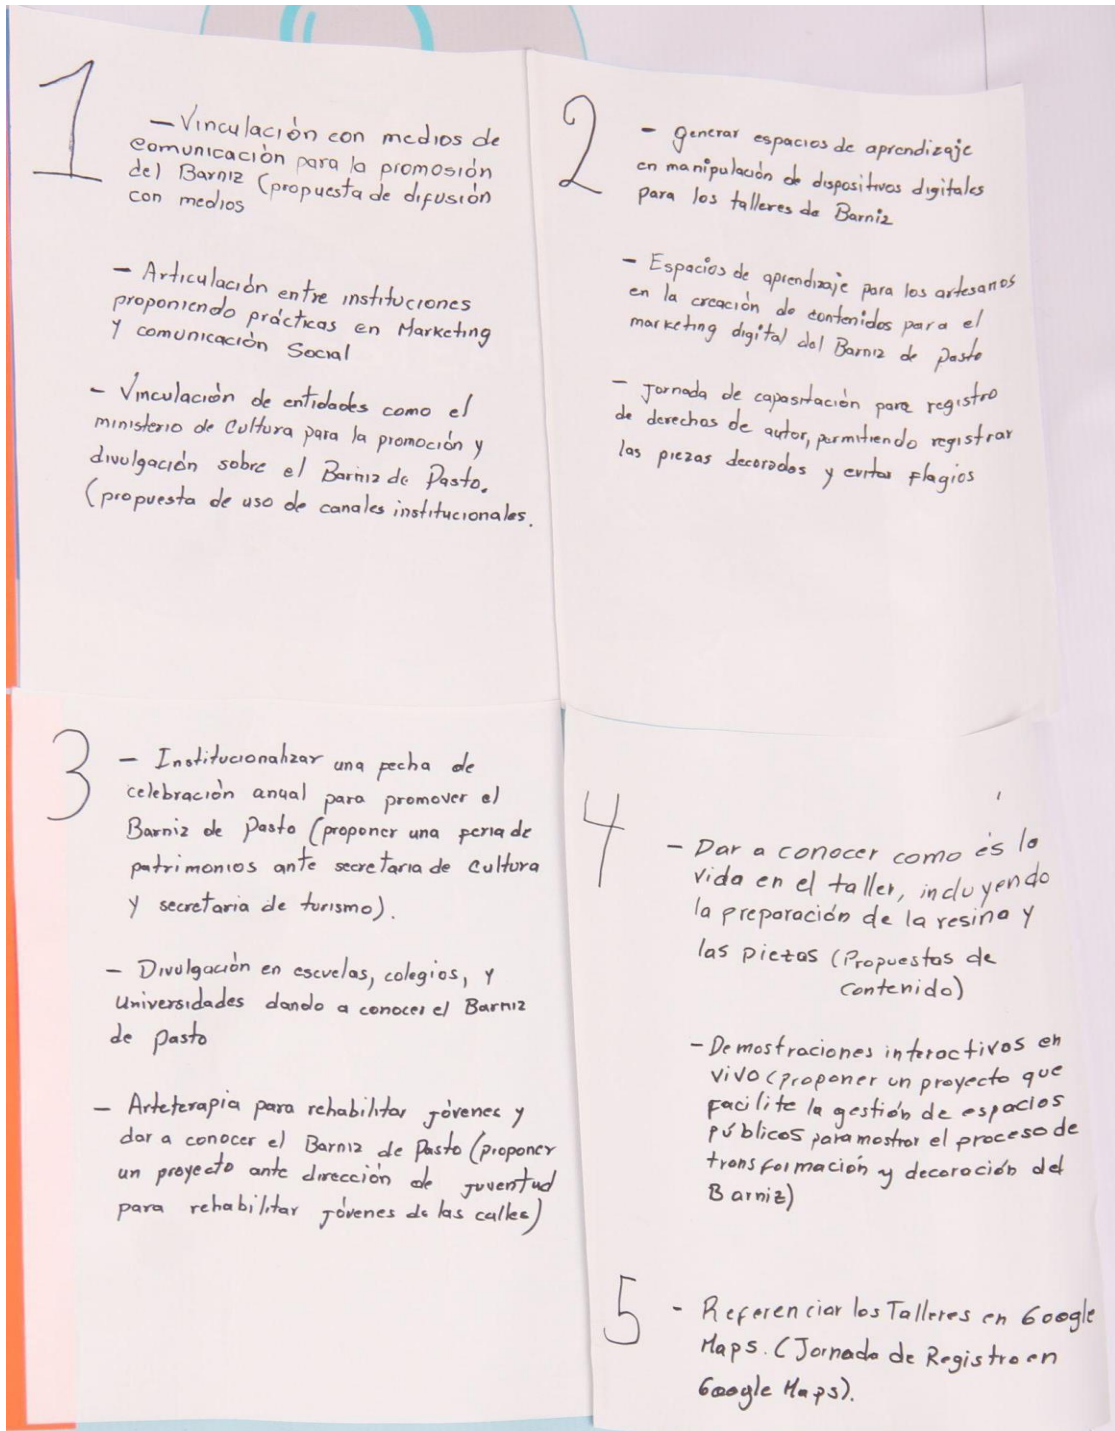 1
— Vinculación con medios de
comunicación para la promosión
del Barniz (propuesta de difusión
con medios
— Articulación entre instituciones
proponiendo prácticas en Marketing
y comunicación Social
— Vinculación de entidades como el
ministerio de Cultura para la promoción y
divulgación sobre el Barniz de Pasto.
(propuesta de uso de canales institucionales.
2
- generar espacios de aprendizaje
en manipulación de dispositivos digitales
para los talleres de Barniz
- Espacios de aprendizaje para los artesanos
en la creación de contenidos para el
marketing digital del Barniz de pasto
- Jornada de capasitación para registro
de derechos de autor, permitiendo registrar
las piezas decoradas y evitar flagios
3
— Institucionalizar una fecha de
celebración anual para promover el
Barniz de Pasto (proponer una feria de
patrimonios ante secretaria de Cultura
y secretaria de turismo).
— Divulgación en escuelas, colegios, y
Universidades dando a conocer el Barniz
de pasto
— Arteterapia para rehabilitar jóvenes y
dar a conocer el Barniz de Pasto (proponer
un proyecto ante dirección de juventud
para rehabilitar jóvenes de las calles)
4
- Dar a conocer como és la
vida en el taller, incluyendo
la preparación de la resina y
las piezas (Propuestas de
contenido)
- Demostraciones interactivas en
vivo (proponer un proyecto que
facilite la gestión de espacios
públicos para mostrar el proceso de
transformación y decoración del
Barniz)
5
- Referenciar los Talleres en Google
Maps. (Jornada de Registro en
Google Maps).